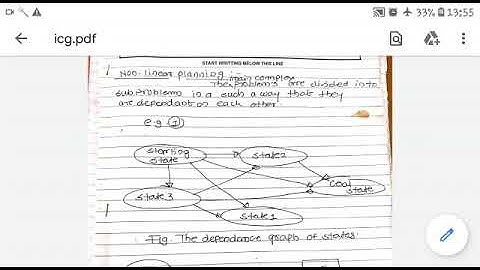 33% 13:55
icg.pdf
START WRITING BELOW THIS LINE
Non-linear planning :-
The main complex problems are divided into
subproblems in a such a way that they
are dependant on each other.
e.g. 1
Starting state
State 2
Goal state
State 3
State 1
Fig. The dependance graph of states